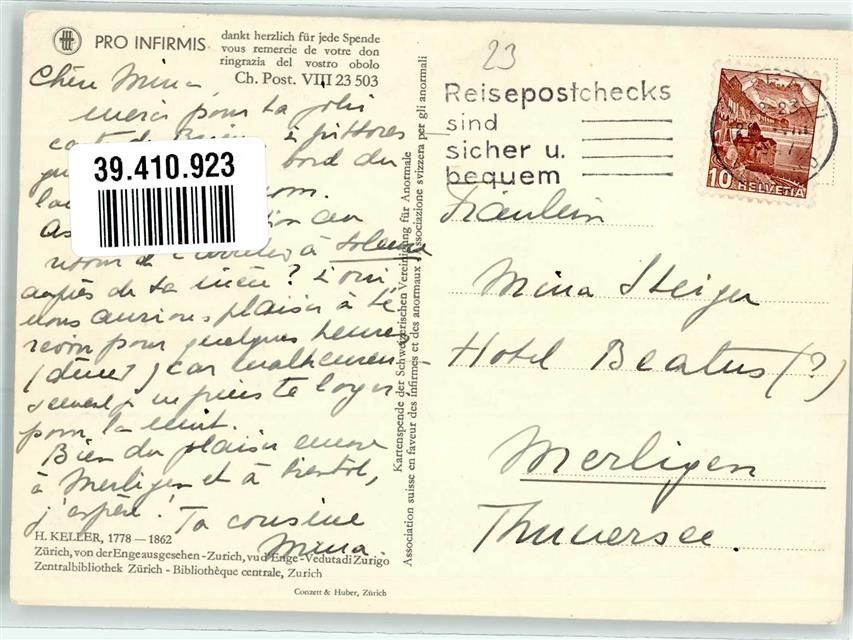 PRO INFIRMIS
dankt herzlich für jede Spende
vous remercie de votre don
ringrazia del vostro obolo
Ch. Post. VIII 23 503
Chère Mina,
merci pour ta jolie
bord du
39.410.923
retour de à
auprès de ta mère? Si oui,
nous aurions plaisir à te
revoir pour quelques heures
(dîner) car malheureu-
sement je ne puis te loger
pour la nuit.
Bien du plaisir encore
à Merligen et à bientôt,
j'espère! Ta cousine
Mina.
H. KELLER, 1778 — 1862
Zürich, von der Enge aus gesehen - Zurich, vu d'Enge - Veduta di Zurigo
Zentralbibliothek Zürich - Bibliothèque centrale, Zurich
Conzett & Huber, Zürich
Kartenspende der Schweizerischen Vereinigung für Anormale
Association suisse en faveur des infirmes et des anormaux Associazione svizzera per gli anormali
23
Reisepostchecks
sind
sicher u.
bequem
10 HELVETIA
Fräulein
Mina Steiger
Hotel Beatus (?)
Merligen
Thunersee.